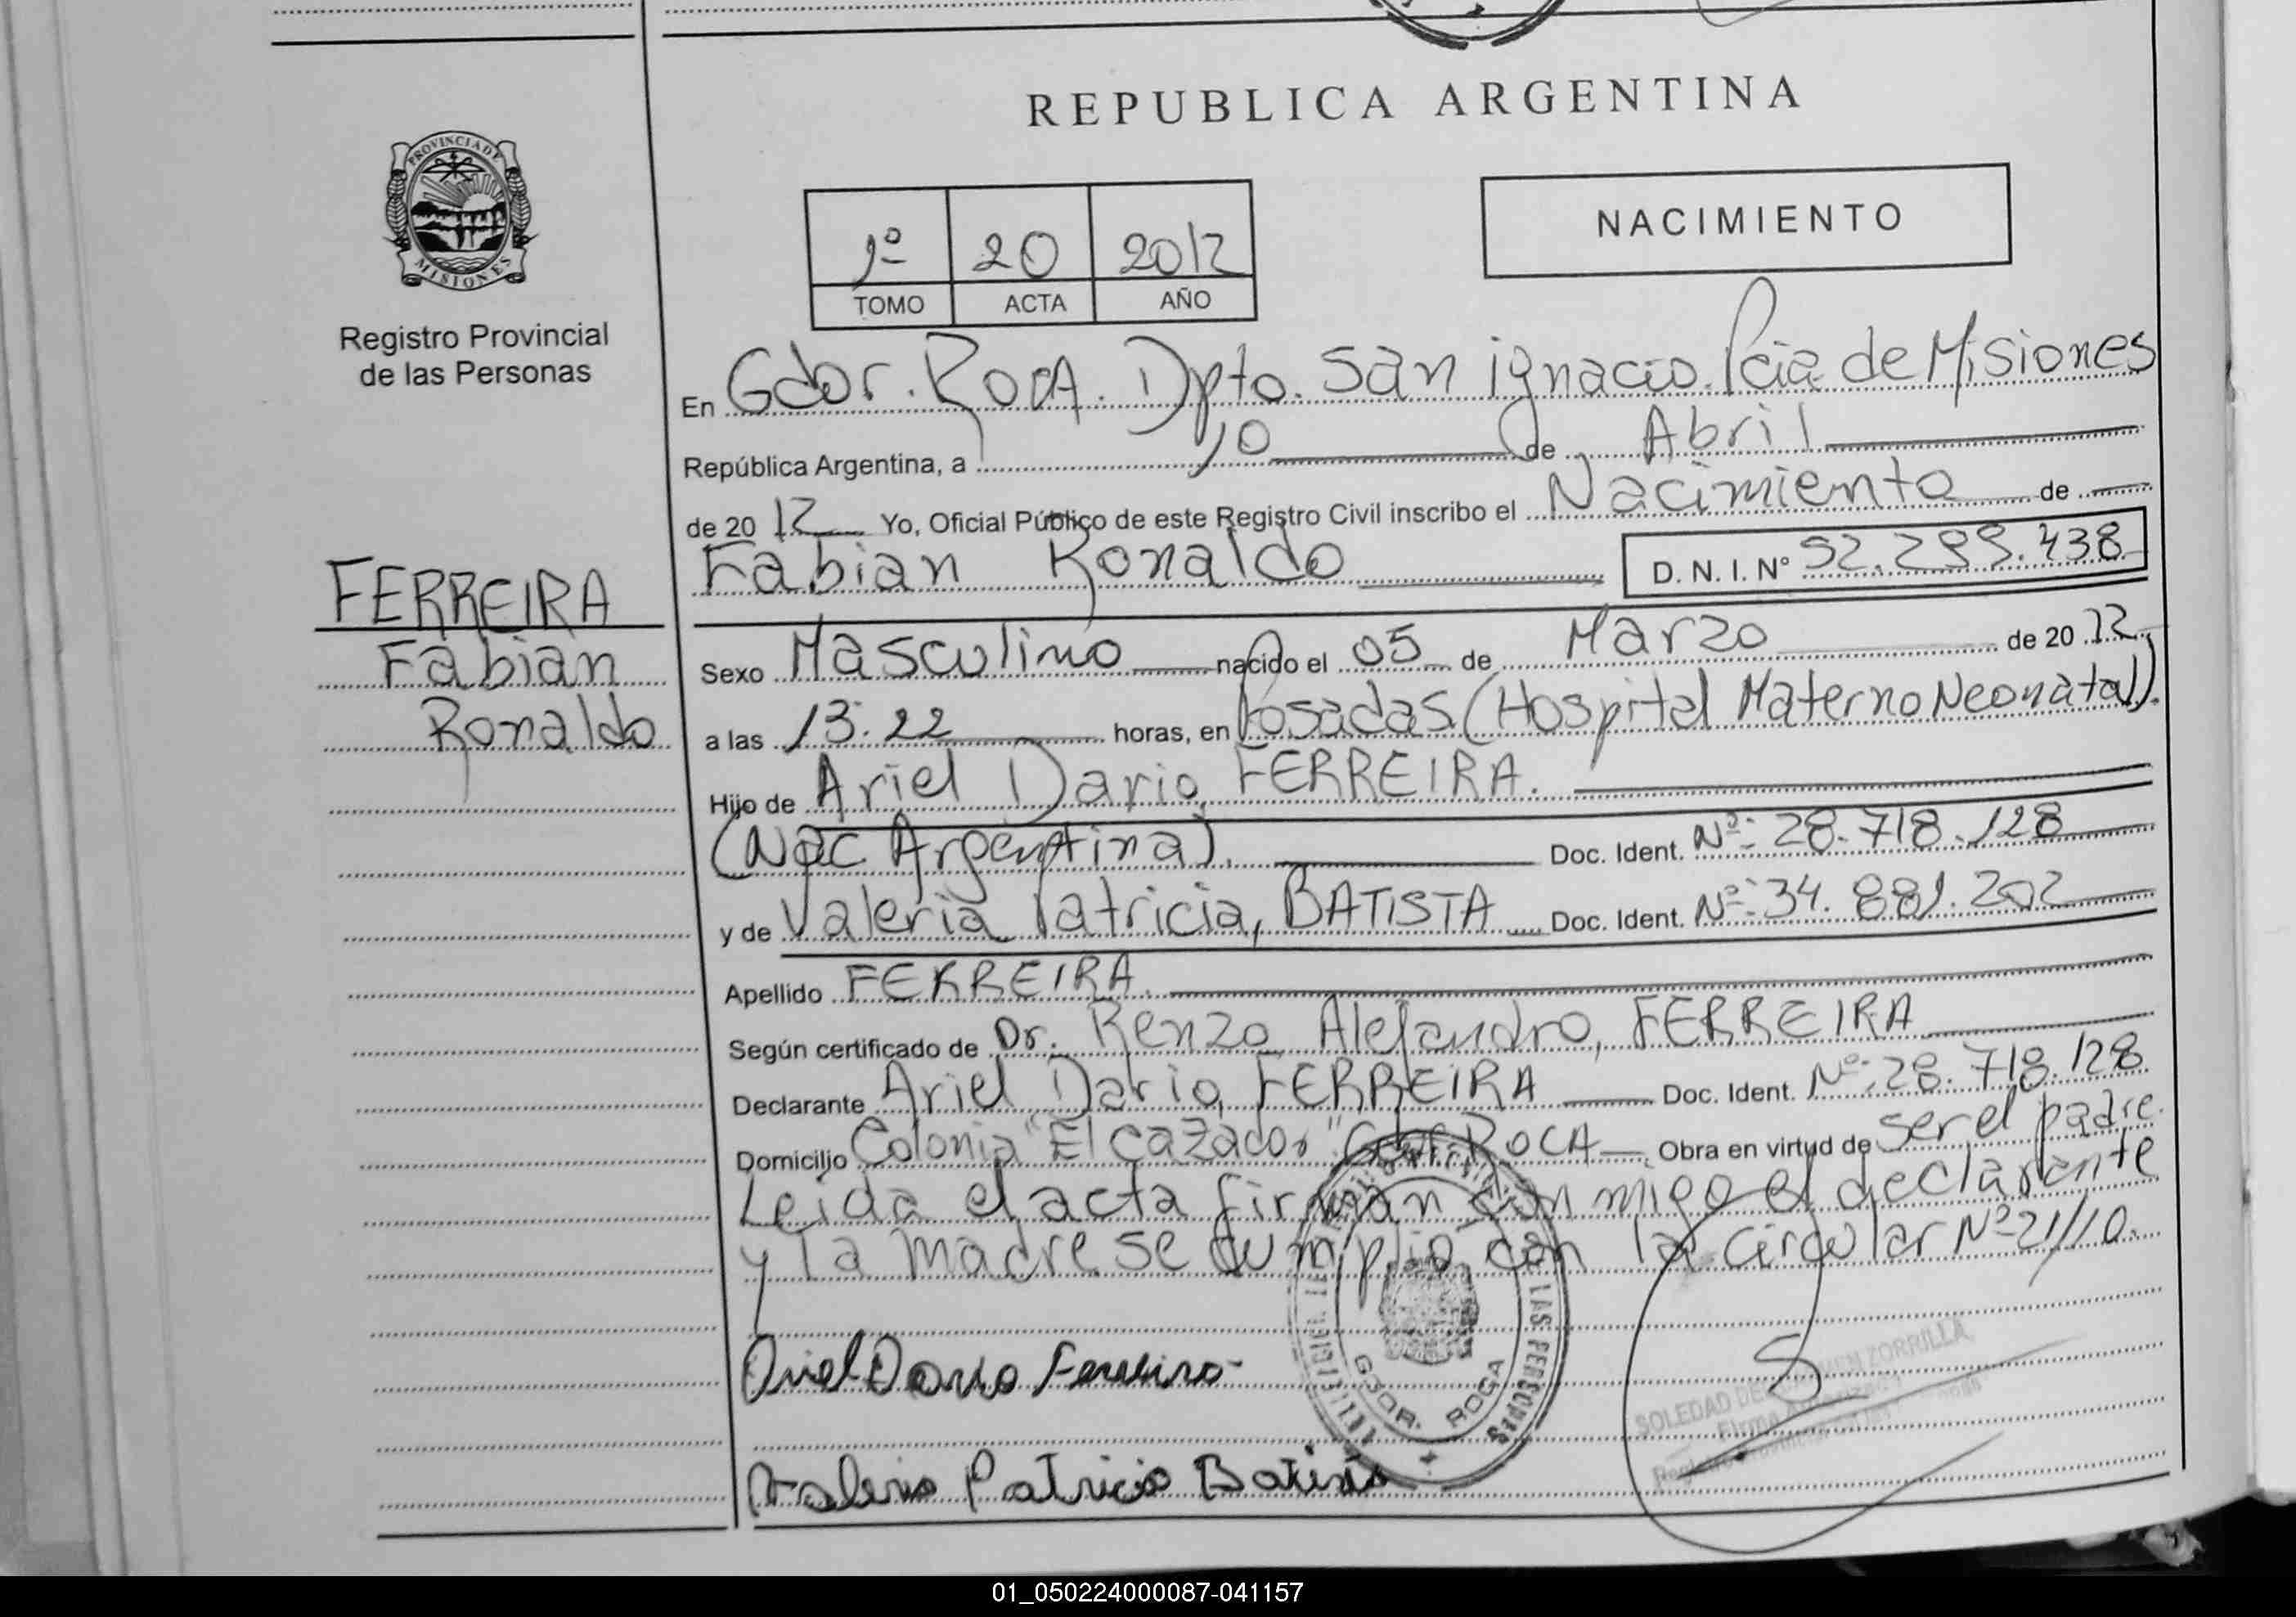 REPUBLICA ARGENTINA
PROVINCIA DE
MISIONES
Registro Provincial
de las Personas
NACIMIENTO
1º 20 2012
TOMO ACTA AÑO
En Gdor. Roca. Dpto. San ignacio. Pcia de Misiones
República Argentina, a 10 de Abril
de 20 12 Yo, Oficial Público de este Registro Civil inscribo el Nacimiento de
Fabian Ronaldo D. N. I. Nº 52.295.438
FERREIRA
Fabian
Ronaldo
Sexo Masculino nacido el 05 de Marzo de 20 12
a las 13:22 horas, en Posadas (Hospital Materno Neonatal).
Hijo de Ariel Dario, FERREIRA.
(Nac. Argentina). Doc. Ident. Nº: 28.718.128
y de Valeria Patricia, BATISTA Doc. Ident. Nº: 34.881.202
Apellido FERREIRA.
Según certificado de Dr. Renzo Alejandro, FERREIRA
Declarante Ariel Dario, FERREIRA Doc. Ident. Nº: 28.718.128
Domicilio Colonia "El Cazador" Gdor ROCA Obra en virtud de ser el padre.
Leida el acta firman con migo el declarante
y la madre se cumplio con la circular Nº 21/10.
Ariel Dario Ferreira
Valeria Patricia Batista
LAS PERSONAS
GDOR. ROCA
SOLEDAD DEL CARMEN ZORRILLA
01_050224000087-041157